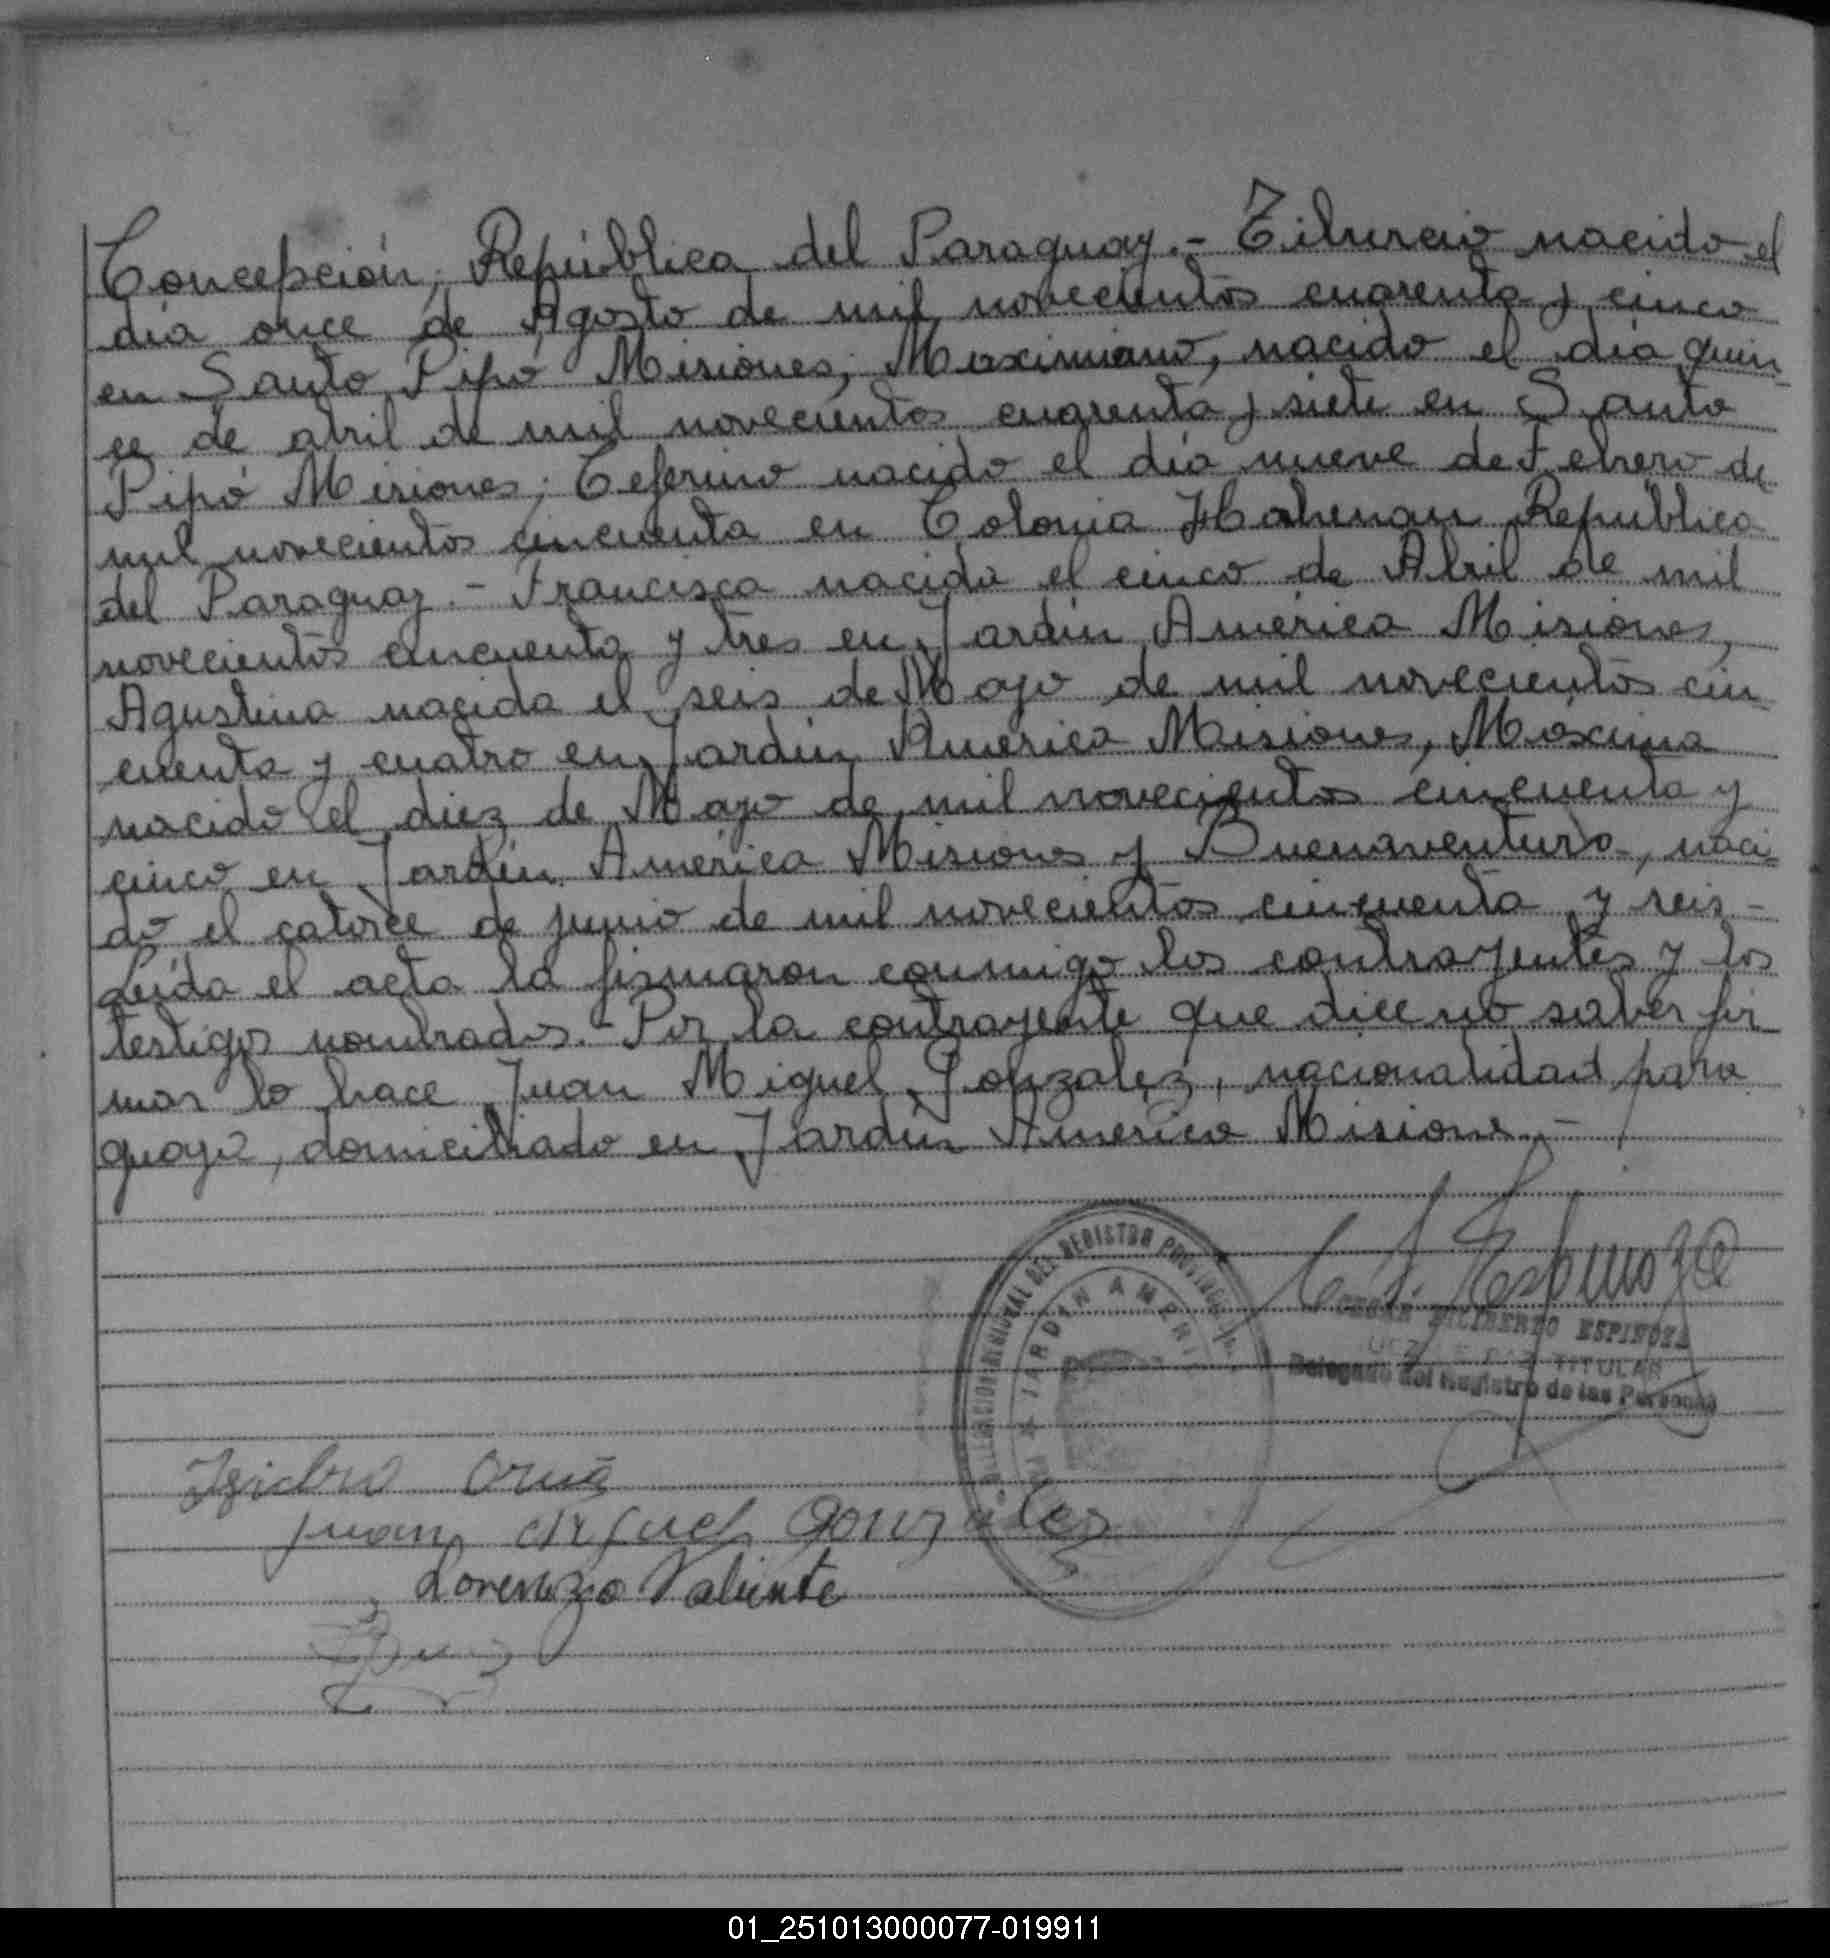 Concepción, República del Paraguay.- Tiburcio nacido el
día once de Agosto de mil novecientos cuarenta y cinco
en Santo Pipó Misiones; Maximiano, nacido el día quin
ce de abril de mil novecientos cuarenta y siete en Santo
Pipó Misiones; Ceferino nacido el día nueve de Febrero de
mil novecientos cincuenta en Colonia Hohenau República
del Paraguay.- Francisca nacida el cinco de Abril de mil
novecientos cincuenta y tres en Jardín América Misiones,
Agustina nacida el seis de Mayo de mil novecientos cin
cuenta y cuatro en Jardín America Misiones, Máxima
nacida el diez de Mayo de mil novecientos cincuenta y
cinco en Jardín América Misiones y Buenaventura, naci
do el catorce de junio de mil novecientos cincuenta y seis-
Leída el acta la firmaron conmigo los contrayentes y los
testigos nombrados.- Por la contrayente que dice no saber fir
mar lo hace Juan Miguel Gonzalez, nacionalidad para
guaya, domiciliado en Jardín America Misiones.-
C. F. Espinoza
DELEGACION REGIONAL DEL REGISTRO PROVINCIAL
JARDIN AMERICA
CESAR FILIBERTO ESPINOZA
JUEZ DE PAZ TITULAR
Delegado del Registro de las Personas
Isidro
Juan Miguel Gonzalez
Lorenzo Valiente
01_251013000077-019911